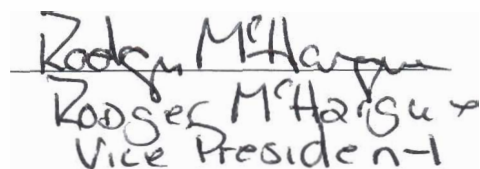 Rodger McHargue
Rodger McHargue
Vice President